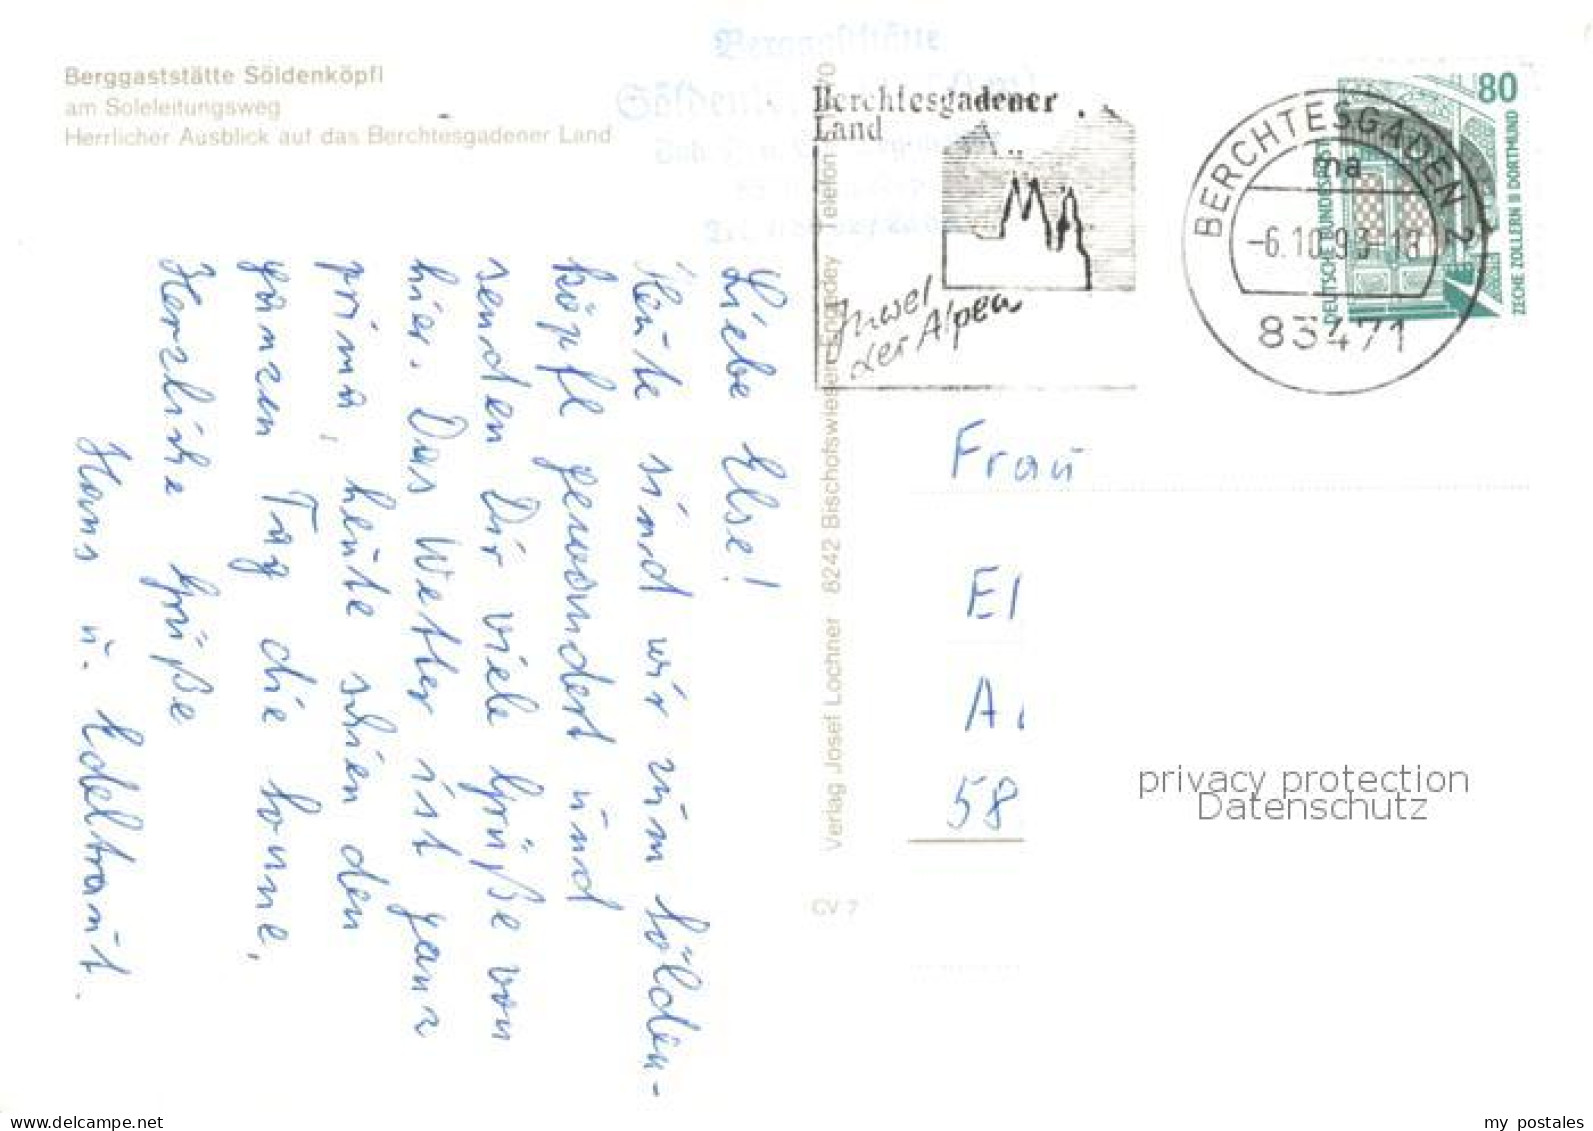 Berggaststätte Söldenköpfl
am Soleleitungsweg
Herrlicher Ausblick auf das Berchtesgadener Land
Berggaststätte
Berchtesgadener
Land
Insel
der Alpen
BERCHTESGADEN 2
ma
-6.10.93-18
83471
80
DEUTSCHE BUNDESPOST
ZECHE ZOLLERN II DORTMUND
Liebe Else!
Heute sind wir zum Sölden-
köpfl gewandert und
senden Dir viele Grüße von
hier. Das Wetter ist ganz
prima, heute schien den
ganzen Tag die Sonne,
Herzliche Grüße
Hans u. Edeltraut.
Verlag Josef Lochner 8242 Bischofswiesen-Engedey Telefon
CV 7
Frau
El
A
58
privacy protection
Datenschutz
my postales